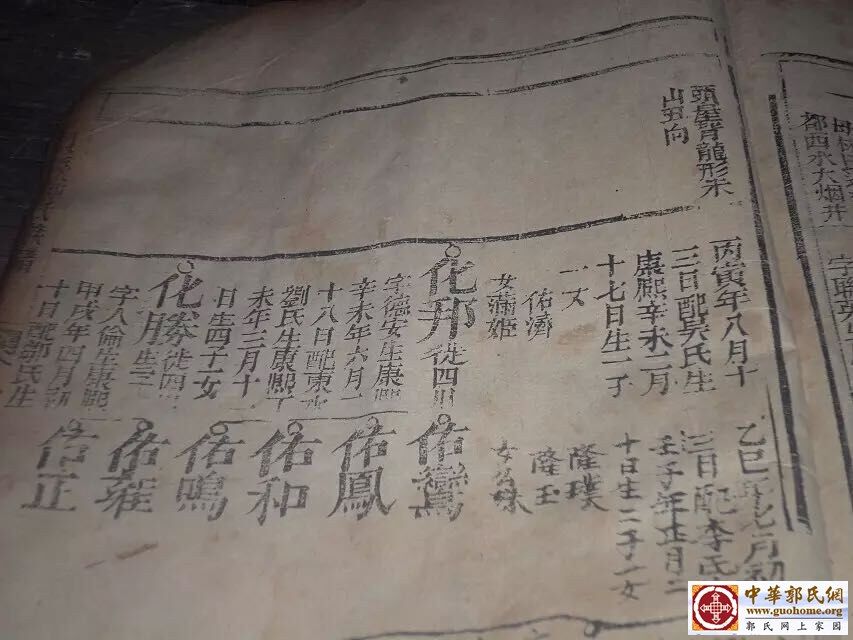 頭屋背龍形未
山丑向
丙寅年八月十
三日配吳氏生
康熙辛未二月
十七日生一子
一女
佑濟
女滿姬
化邦徙四川
字德安生康熙
辛未年六月
十八日配東
劉氏生康熙
未年三月十
日生四子一女
化勝徙四川
字人倫生康熙
甲戌年四月初
十日配鄒氏生
乙巳年七月初
三日配李氏
壬子年正月二
十日生二子一女
隆璞
隆玉
佑鸞
佑鳳
佑和
佑鳴
佑正
都西水大烟井
中華郭氏網
www.guohome.org
郭氏网上家园